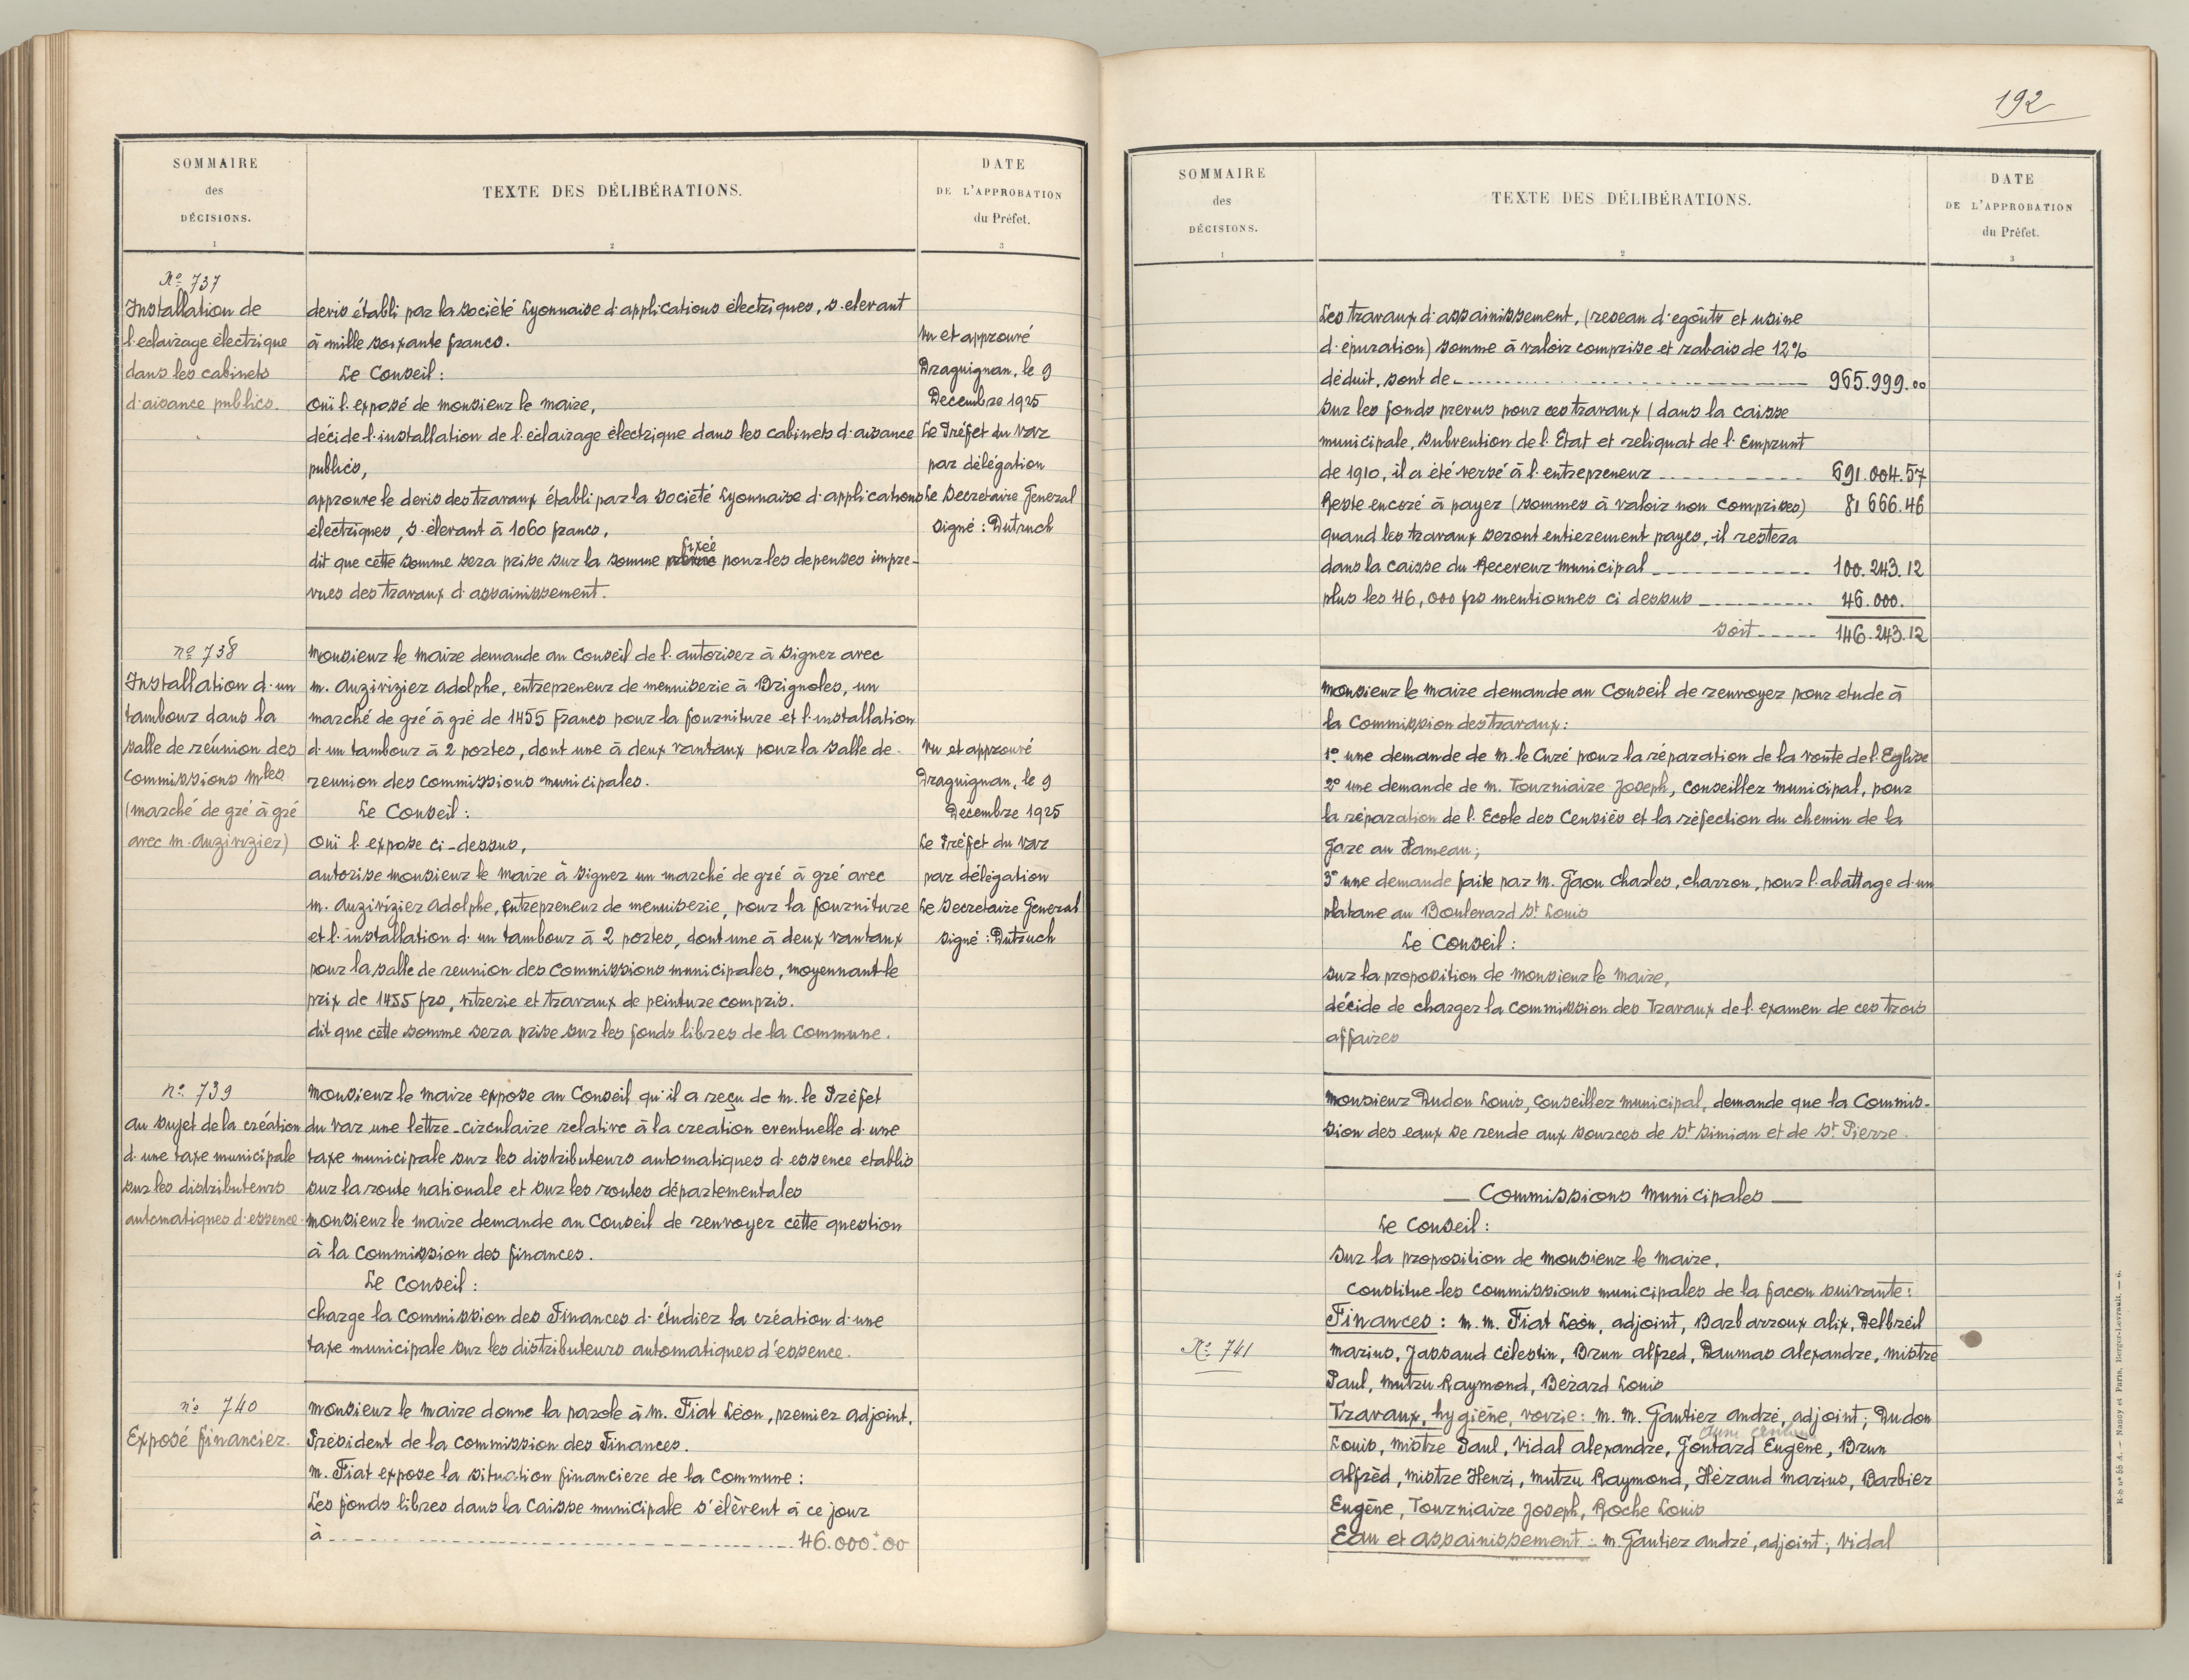 SOMMAIRE
des
DÉCISIONS.
1
TEXTE DES DÉLIBÉRATIONS.
2
DATE
DE L'APPROBATION
du Préfet.
3
No 737
Installation de
l'eclairage électrique
dans les cabinets
d'aisance publics.
devis établi par la société Lyonnaise d'applications électriques, s'elevant
à mille soixante francs.
Le Conseil :
Ouï l'exposé de monsieur le maire,
décide l'installation de l'éclairage électrique dans les cabinets d'aisance
publics,
approuve le devis des travaux établi par la société Lyonnaise d'applications
électriques, s'élevant à 1060 francs,
fixée
dit que cette somme sera prise sur la somme prévue pour les depenses impre-
vues des travaux d'assainissement.
Vu et approuvé
Draguignan, le 9
Decembre 1925
Le Préfet du Var
par délégation
Le Secretaire General
signé : Dutruch
no 738
Installation d'un
tambour dans la
salle de réunion des
Commissions Mles
(marché de gré à gré
avec m. Auzivizier)
Monsieur le maire demande au Conseil de l'autoriser à signer avec
m. Auzivizier Adolphe, entrepreneur de menuiserie à Brignoles, un
marché de gré à gré de 1455 Francs pour la fourniture et l'installation
d'un tambour à 2 portes, dont une à deux vantaux pour la salle de
reunion des commissions municipales.
Le Conseil :
Ouï l'expose ci-dessus,
autorise monsieur le maire à signer un marché de gré à gré avec
m. Auzivizier Adolphe, entrepreneur de menuiserie, pour la fourniture
et l'installation d'un tambour à 2 portes, dont une à deux vantaux
pour la salle de reunion des Commissions municipales, moyennant le
prix de 1455 frs, vitrerie et travaux de peinture compris.
dit que cette somme sera prise sur les fonds libres de la Commune.
Vu et approuvé
Draguignan, le 9
Décembre 1925
Le Préfet du Var
par délégation
Le Secretaire General
signé : Dutruch
no 739
au sujet de la création
d'une taxe municipale
sur les distributeurs
automatiques d'essence.
Monsieur le maire expose au Conseil qu'il a reçu de m. le Préfet
du Var une lettre-circulaire relative à la creation eventuelle d'une
taxe municipale sur les distributeurs automatiques d'essence etablis
sur la route nationale et sur les routes départementales
Monsieur le maire demande au Conseil de renvoyer cette question
à la Commission des finances.
Le Conseil :
charge la Commission des Finances d'étudier la création d'une
taxe municipale sur les distributeurs automatiques d'essence.
no 740
Exposé financier.
Monsieur le maire donne la parole à m. Fiat Léon, premier adjoint,
Président de la Commission des Finances.
m. Fiat expose la situation financiere de la Commune :
Les fonds libres dans la Caisse municipale s'élèvent à ce jour
à ---------- 46.000.00
192
SOMMAIRE
des
DÉCISIONS.
1
TEXTE DES DÉLIBÉRATIONS.
2
DATE
DE L'APPROBATION
du Préfet.
3
Les travaux d'assainissement, (reseau d'egoûts et usine
d'épuration) somme à valoir comprise et rabais de 12%
déduit, sont de ---------- 965.999.00
sur les fonds prevus pour ces travaux (dans la caisse
municipale, subvention de l'État et reliquat de l'Emprunt
de 1910, il a été versé à l'entrepreneur ---------- 691.004.57
Reste encoré à payer (sommes à valoir non comprises) 81 666.46
quand les travaux seront entierement payes, il restera
dans la caisse du Receveur municipal ---------- 100.243.12
plus les 46,000 frs mentionnes ci dessus ---------- 46.000.
soit ----- 146.243.12
Monsieur le maire demande au Conseil de renvoyer pour etude à
la Commission des travaux :
1o une demande de m. le Curé pour la réparation de la voûte de l'Eglise
2o une demande de m. Tourniaire Joseph, Conseiller municipal, pour
la réparation de l'Ecole des Censiés et la réfection du chemin de la
Gare au Hameau ;
3o une demande faite par m. Gaou Charles, charron, pour l'abattage d'un
platane au Boulevard St Louis
Le Conseil :
sur la proposition de Monsieur le Maire,
décide de charger la Commission des Travaux de l'examen de ces trois
affaires
Monsieur Dudon Louis, conseiller municipal, demande que la Commis-
sion des eaux se rende aux sources de St Simian et de St Pierre.
— Commissions Municipales —
Le Conseil :
sur la proposition de Monsieur le Maire,
constitue les commissions municipales de la facon suivante :
No 741
Finances : m. m. Fiat Léon, adjoint, Barbarroux Alix, Delbreil
Marius, Jassaud Célestin, Brun Alfred, Daumas Alexandre, Mistre
Paul, Mutzu Raymond, Bérard Louis
Travaux, hygiène, vorzie : m. m. Gautier André, adjoint ; Dudon
Louis, Mistre Paul, Vidal Alexandre, Goutard Eugène, Brun
Alfréd, Mistre Henri, Mutzu Raymond, Héraud Marius, Barbier
Eugène, Tourniaire Joseph, Roche Louis
Eau et Assainissement : m. Gautier André, adjoint ; Vidal